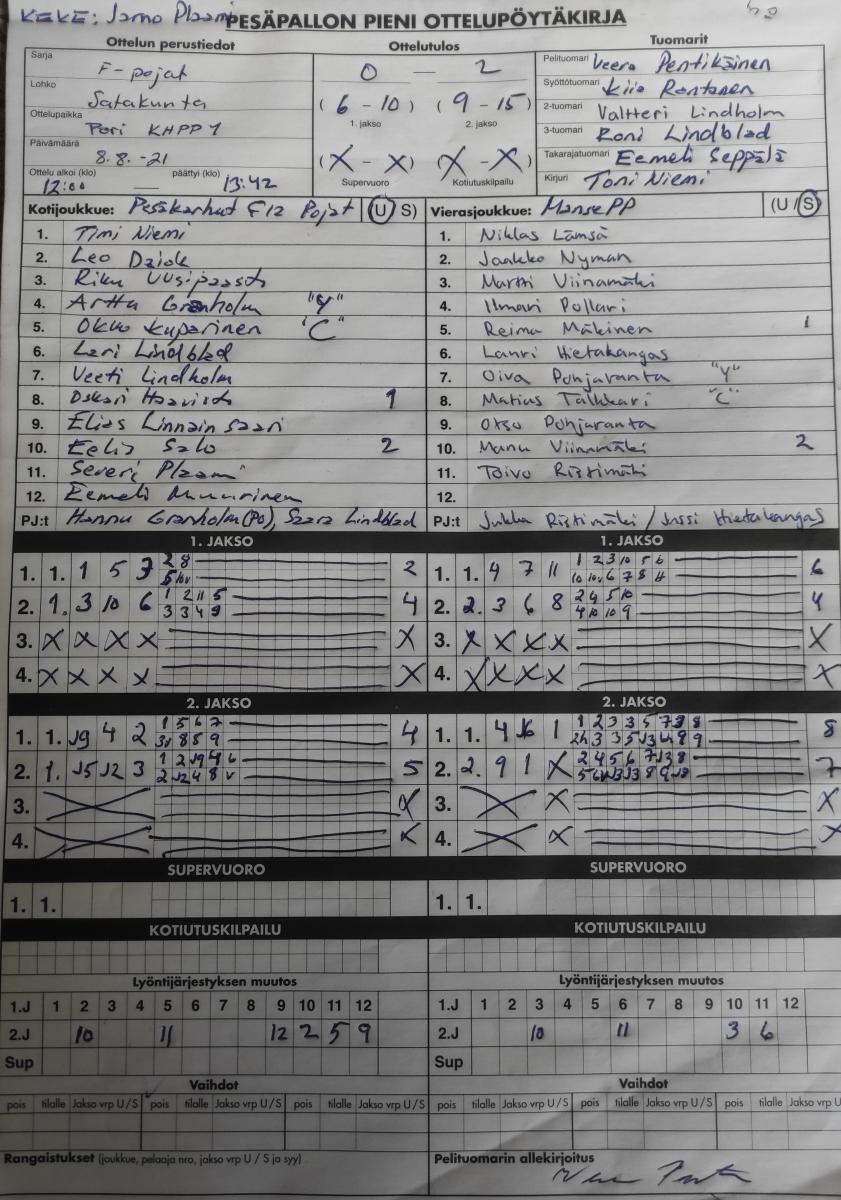 KEKE: Jarno Plaami
PESÄPALLON PIENI OTTELUPÖYTÄKIRJA
Ottelun perustiedot
Sarja F-pojat
Lohko Satakunta
Ottelupaikka Pori KHPP 1
Päivämäärä 8.8. -21
Ottelu alkoi (klo) päättyi (klo)
12:00 — 13:42
Ottelutulos
0 — 2
(6 - 10) (9 - 15)
1. jakso 2. jakso
(X - X) (X - X)
Supervuoro Kotiutuskilpailu
Tuomarit
Pelituomari Veera Pentikäinen
Syöttötuomari Kiia Rantanen
2-tuomari Valtteri Lindholm
3-tuomari Roni Lindblad
Takarajatuomari Eemeli Seppälä
Kirjuri Toni Niemi
Kotijoukkue: Pesäkarhut F12 Pojat (U/S)
1. Timi Niemi
2. Leo Dziok
3. Riku Uusipaasto
4. Arttu Granholm "Y"
5. Okko Kuparinen "C"
6. Lari Lindblad
7. Veeti Lindholm
8. Oskari Haavisto 1
9. Elias Linnainsaari
10. Eelis Salo 2
11. Severi Plaami
12. Eemeli Muurinen
PJ:t Hannu Granholm (PO), Saara Lindblad
Vierasjoukkue: Manse PP (U/S)
1. Niklas Lämsä
2. Jaakko Nyman
3. Martti Viinamäki
4. Ilmari Pollari
5. Reima Mäkinen 1
6. Lauri Hietakangas
7. Oiva Pohjaranta "Y"
8. Matius Talkkari "C"
9. Otso Pohjaranta
10. Manu Viinamäki 2
11. Toivo Ristimäki
12.
PJ:t Jukka Ristimäki / Jussi Hietakangas
1. JAKSO
1. 1. 1 5 7 2
2. 1. 3 10 6 1 2 11 5 4
3 3 4 9
3. X X X X X
4. X X X X X
1. JAKSO
1. 1. 4 7 11 1 2 3 10 5 6 6
2. 2. 3 6 8 2 4 5 10 4
4 10 10 9
3. X X X X X
4. X X X X X
2. JAKSO
1. 1. 4 2 1 5 6 7 4
2. 1. 3 5
3. X X
4. X X
2. JAKSO
1. 1. 4 1 1 2 3 3 5 7 8
2. 2. 9 1 X 2 4 5 6 7
3. X X X
4. X X X
SUPERVUORO
1. 1.
SUPERVUORO
1. 1.
KOTIUTUSKILPAILU
KOTIUTUSKILPAILU
Lyöntijärjestyksen muutos
1.J 1 2 3 4 5 6 7 8 9 10 11 12
2.J 10 11 12 2 5 9
Sup
Lyöntijärjestyksen muutos
1.J 1 2 3 4 5 6 7 8 9 10 11 12
2.J 10 11 3 6
Sup
Vaihdot
pois tilalle Jakso vrp U / S pois tilalle Jakso vrp U / S pois tilalle Jakso vrp U / S
Vaihdot
pois tilalle Jakso vrp U / S pois tilalle Jakso vrp U / S pois tilalle Jakso vrp U
Rangaistukset (joukkue, pelaaja nro, jakso vrp U / S ja syy)
Pelituomarin allekirjoitus